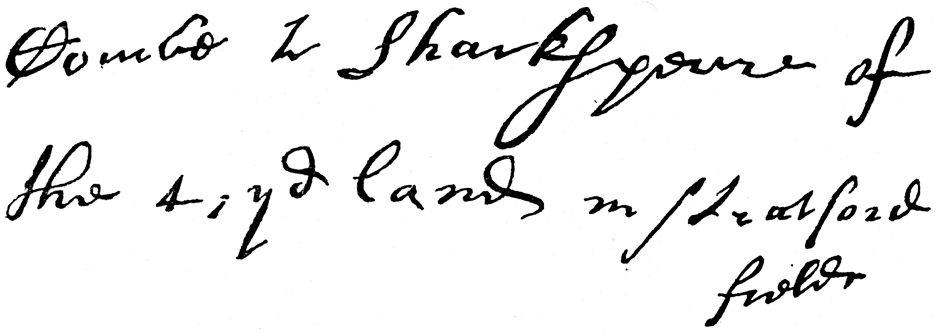 Combe to Shackspeare of
the 4 yd land in Stratford
fields